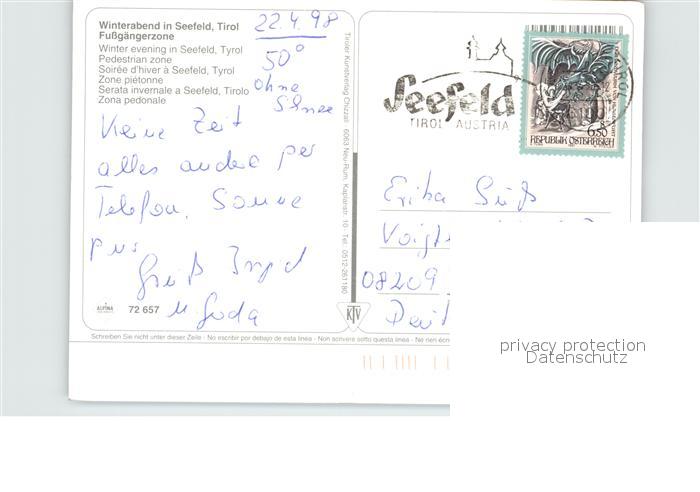 Winterabend in Seefeld, Tirol
Fußgängerzone
Winter evening in Seefeld, Tyrol
Pedestrian zone
Soirée d'hiver à Seefeld, Tyrol
Zone piétonne
Serata invernale a Seefeld, Tirolo
Zona pedonale
22.4.98
50°
ohne
Schnee
Keine Zeit
alles andre per
Telefon. Sonne
pur
Gruß Ingrid
u.
ALPINA
72 657
Tiroler Kunstverlag Chizzali · 6063 Neu-Rum, Kaplanstr. 10 · Tel. 0512-261180
KTV
Seefeld
TIROL AUSTRIA
TIROL
6.50
REPUBLIK ÖSTERREICH
Erika Süß
Voigt
08209
Deut
Schreiben Sie nicht unter dieser Zeile - No escribir por debajo de esta linea - Non scrivere sotto questa linea - Ne rien écr
privacy protection
Datenschutz